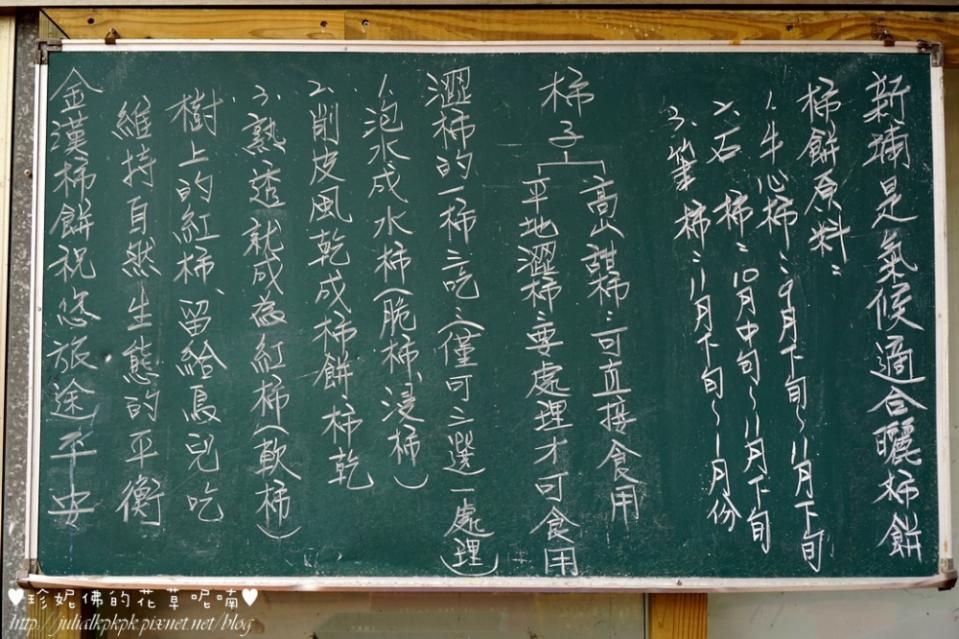 新埔是氣候適合曬柿餅
柿餅原料：
1、牛心柿：9月下旬～11月下旬
2、石 柿：10月中旬～11月下旬
3、筆 柿：11月下旬～1月份
柿子
高山甜柿：可直接食用
平地澀柿：要處理才可食用
澀柿的一柿三吃（僅可三選一處理）
1、泡水成水柿（脆柿、浸柿）
2、削皮風乾成柿餅、柿乾
3、熟透就成為紅柿（軟柿）
樹上的紅柿、留給鳥兒吃
維持自然生態的平衡
金漢柿餅祝您旅途平安
♥珍妮佛的花草呢喃♥
http://julialkpkpk.pixnet.net/blog